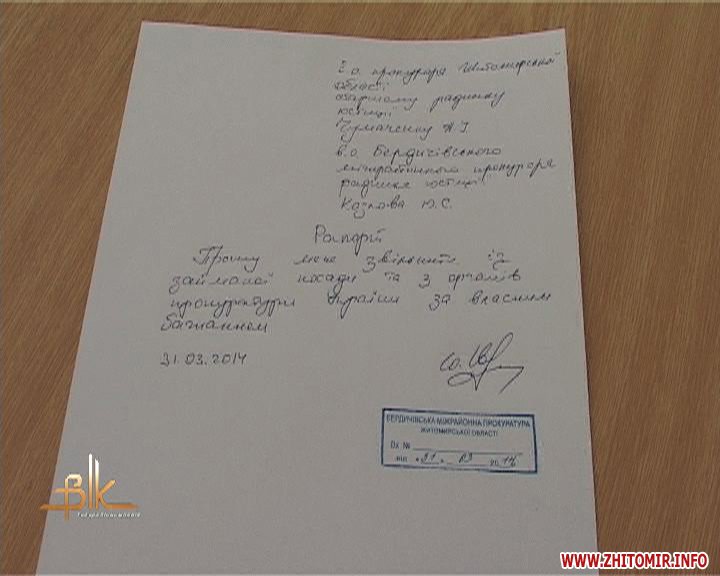 В.о. прокурора Житомирської
області
старшому раднику
юстиції
в.о. Бердичівського
міжрайонного прокурора
радника юстиції
Козлова Ю.С.
Рапорт
Прошу мене звільнити із
займаної посади та з органів
прокуратури України за власним
бажанням
31.03.2014
БЕРДИЧІВСЬКА МІЖРАЙОННА ПРОКУРАТУРА
ЖИТОМИРСЬКОЇ ОБЛАСТІ
Вх №
від «31» 03 2014
ВІК
WWW.ZHITOMIR.INFO